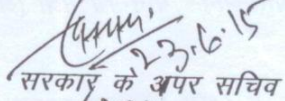 23.6.15
सरकार के अपर सचिव